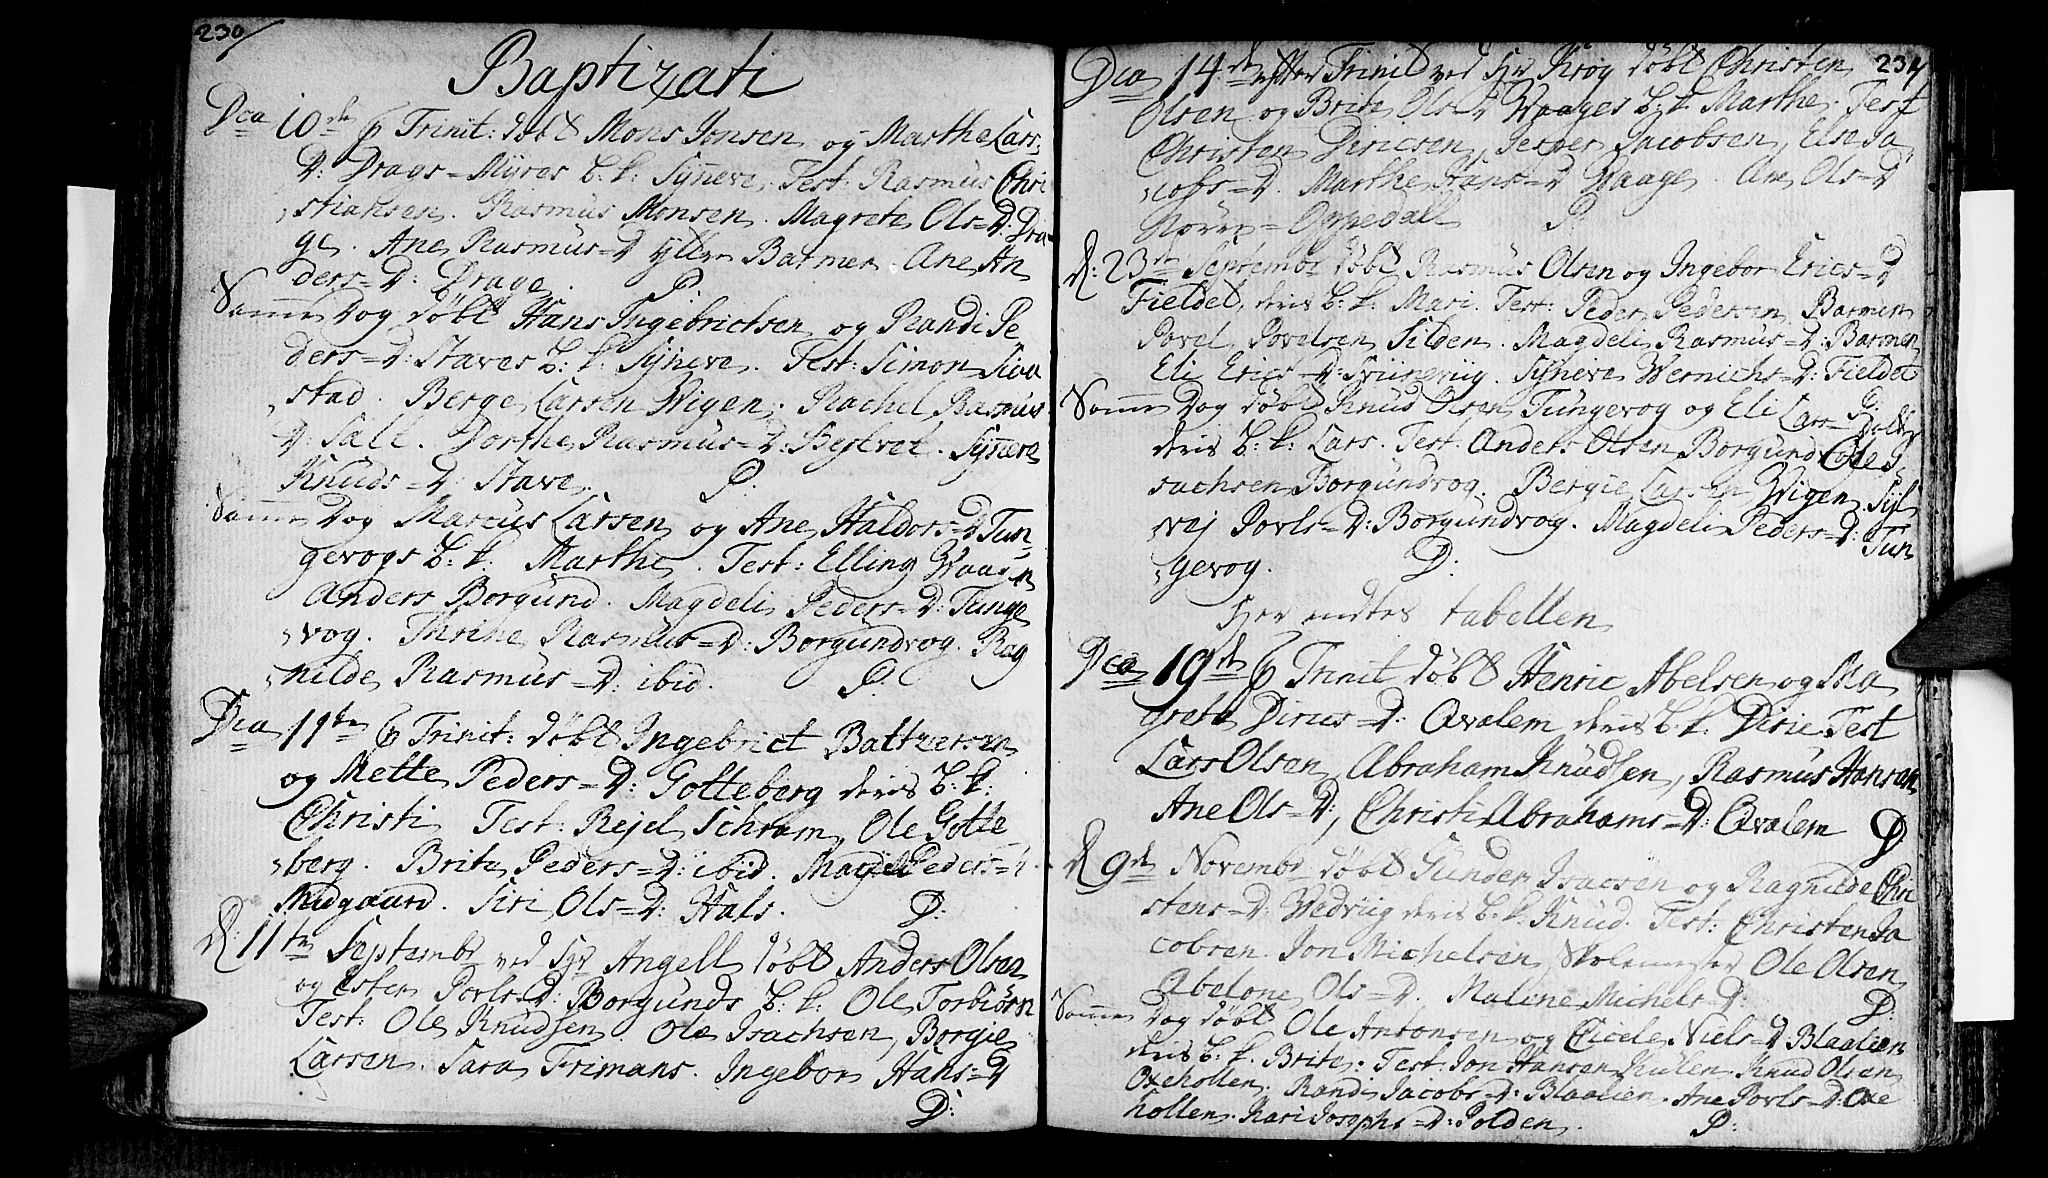 230
Baptizati
Dca 10de p Trinit: døbt Mons Jonsen og Marthe Lars=
D: Drags=Myres b. k. Synneve. Test: Rasmus Chri
stiansen. Rasmus Monsen. Magrete Ols=D: Dra
ge. Ane Rasmus=D Barmen. Ane An
ders=D: Drage. P.
Samme Dag døbt Hans Ingebrictsen og Randi Pe
ders=D: Staves b: k: Synneve. Test: Simon Siva
stad. Berge Larsen Wigen. Rachel Rasmus
D: Sall. Dorthe Rasmus=D: . Synneve
Knuds=D: Stave. P.
Samme Dag Marcus Larsen og Ane Haldors=D Tun
gevogs b: k. Marthe. Test: Elling Waagen
Anders Borgund. Magdeli Peders=D: Tunge
vog. Rasmus=D: Borgundvog. Rag
nilde Rasmus=D: ibid. P.
Dca 11te p Trinit: døbt Ingebrict Baltzersen
og Mette Peders=D: Gotteberg deris b. k:
Christi Test: Rejel Schram, Ole Gotte
berg. Brite Peders=D: ibid. Magdel Peders=D
Midgaard. Siri Ols=D: Hals. D:
d 11te Septembr ved Hr Angell døbt Anders Olsen
og Ester Povls=D: Borgunds b: k. Ole Torbiørn
Test: Ole Knudsen. Ole Isachsen, Borgie
Larsen. Sara Frimans. Ingebor Hans=D
D:
231
Dca 14de efter Trinit ved Hr Krog døbt Christen
Olsen og Brite Ols=D Waages b: k. Marthe. Test
Christen Diricsen, Jesper Jacobsen, Else Ja
cobs=D. Marthe Hans=D Waage. Ane Ols=D
Nørre=Oppedall P.
d: 23de Septembr døbt Rasmus Olsen og Ingebor Erics=D
Fieldet, deris b: k. Mari. Test: Peder Pedersen Barmen
Povel Povelsen Silden. Magdeli Rasmus=D: Barmen
Eli Erics=D: . Synneve Wernichs=D: Fieldet
P.
Samme Dag døbt Knud Olsen Tungevog og Eli Lars=Dotter
deris b: k: Lars. Test Anders Olsen Borgundvog Ole I
sachsen Borgundvog. Bergie Larsen Wigen. Syl
vej Povls=D: Borgundvog. Magdeli Peders=D: Tun
gevog. D:
Her endtes tabellen
Dca 19de p Trinit døbt Henric Abelsen og Ma
grete Dirics=D: Qvalem deris b: k. Diric Test
Lars Olsen, Abraham Knudsen, Rasmus Hansen
Ane Ols=D, Christi Abrahams=D: Qvalem D
d 9de Novembr døbt Gunder Isacsen og Ragnilde Chri
stens=D: Wedviig deris b. k. Knud. Test: Christen Ja
cobsen. Jon Michelsen, Skolemester Ole Olsen
Abelone Ols=D. Malene Michels=D:
D:
Samme Dag døbt Ole Antonsen og Cicele Niels=D Blaalien
deris b. k. Brite. Test. Jon Hansen Hulen Knud Olsen
Oxehollen. Randi Jacobs=D: Blaalien. Ane Povls=D: Oxe
hollen. Kari Josephs=D: Polden. P: